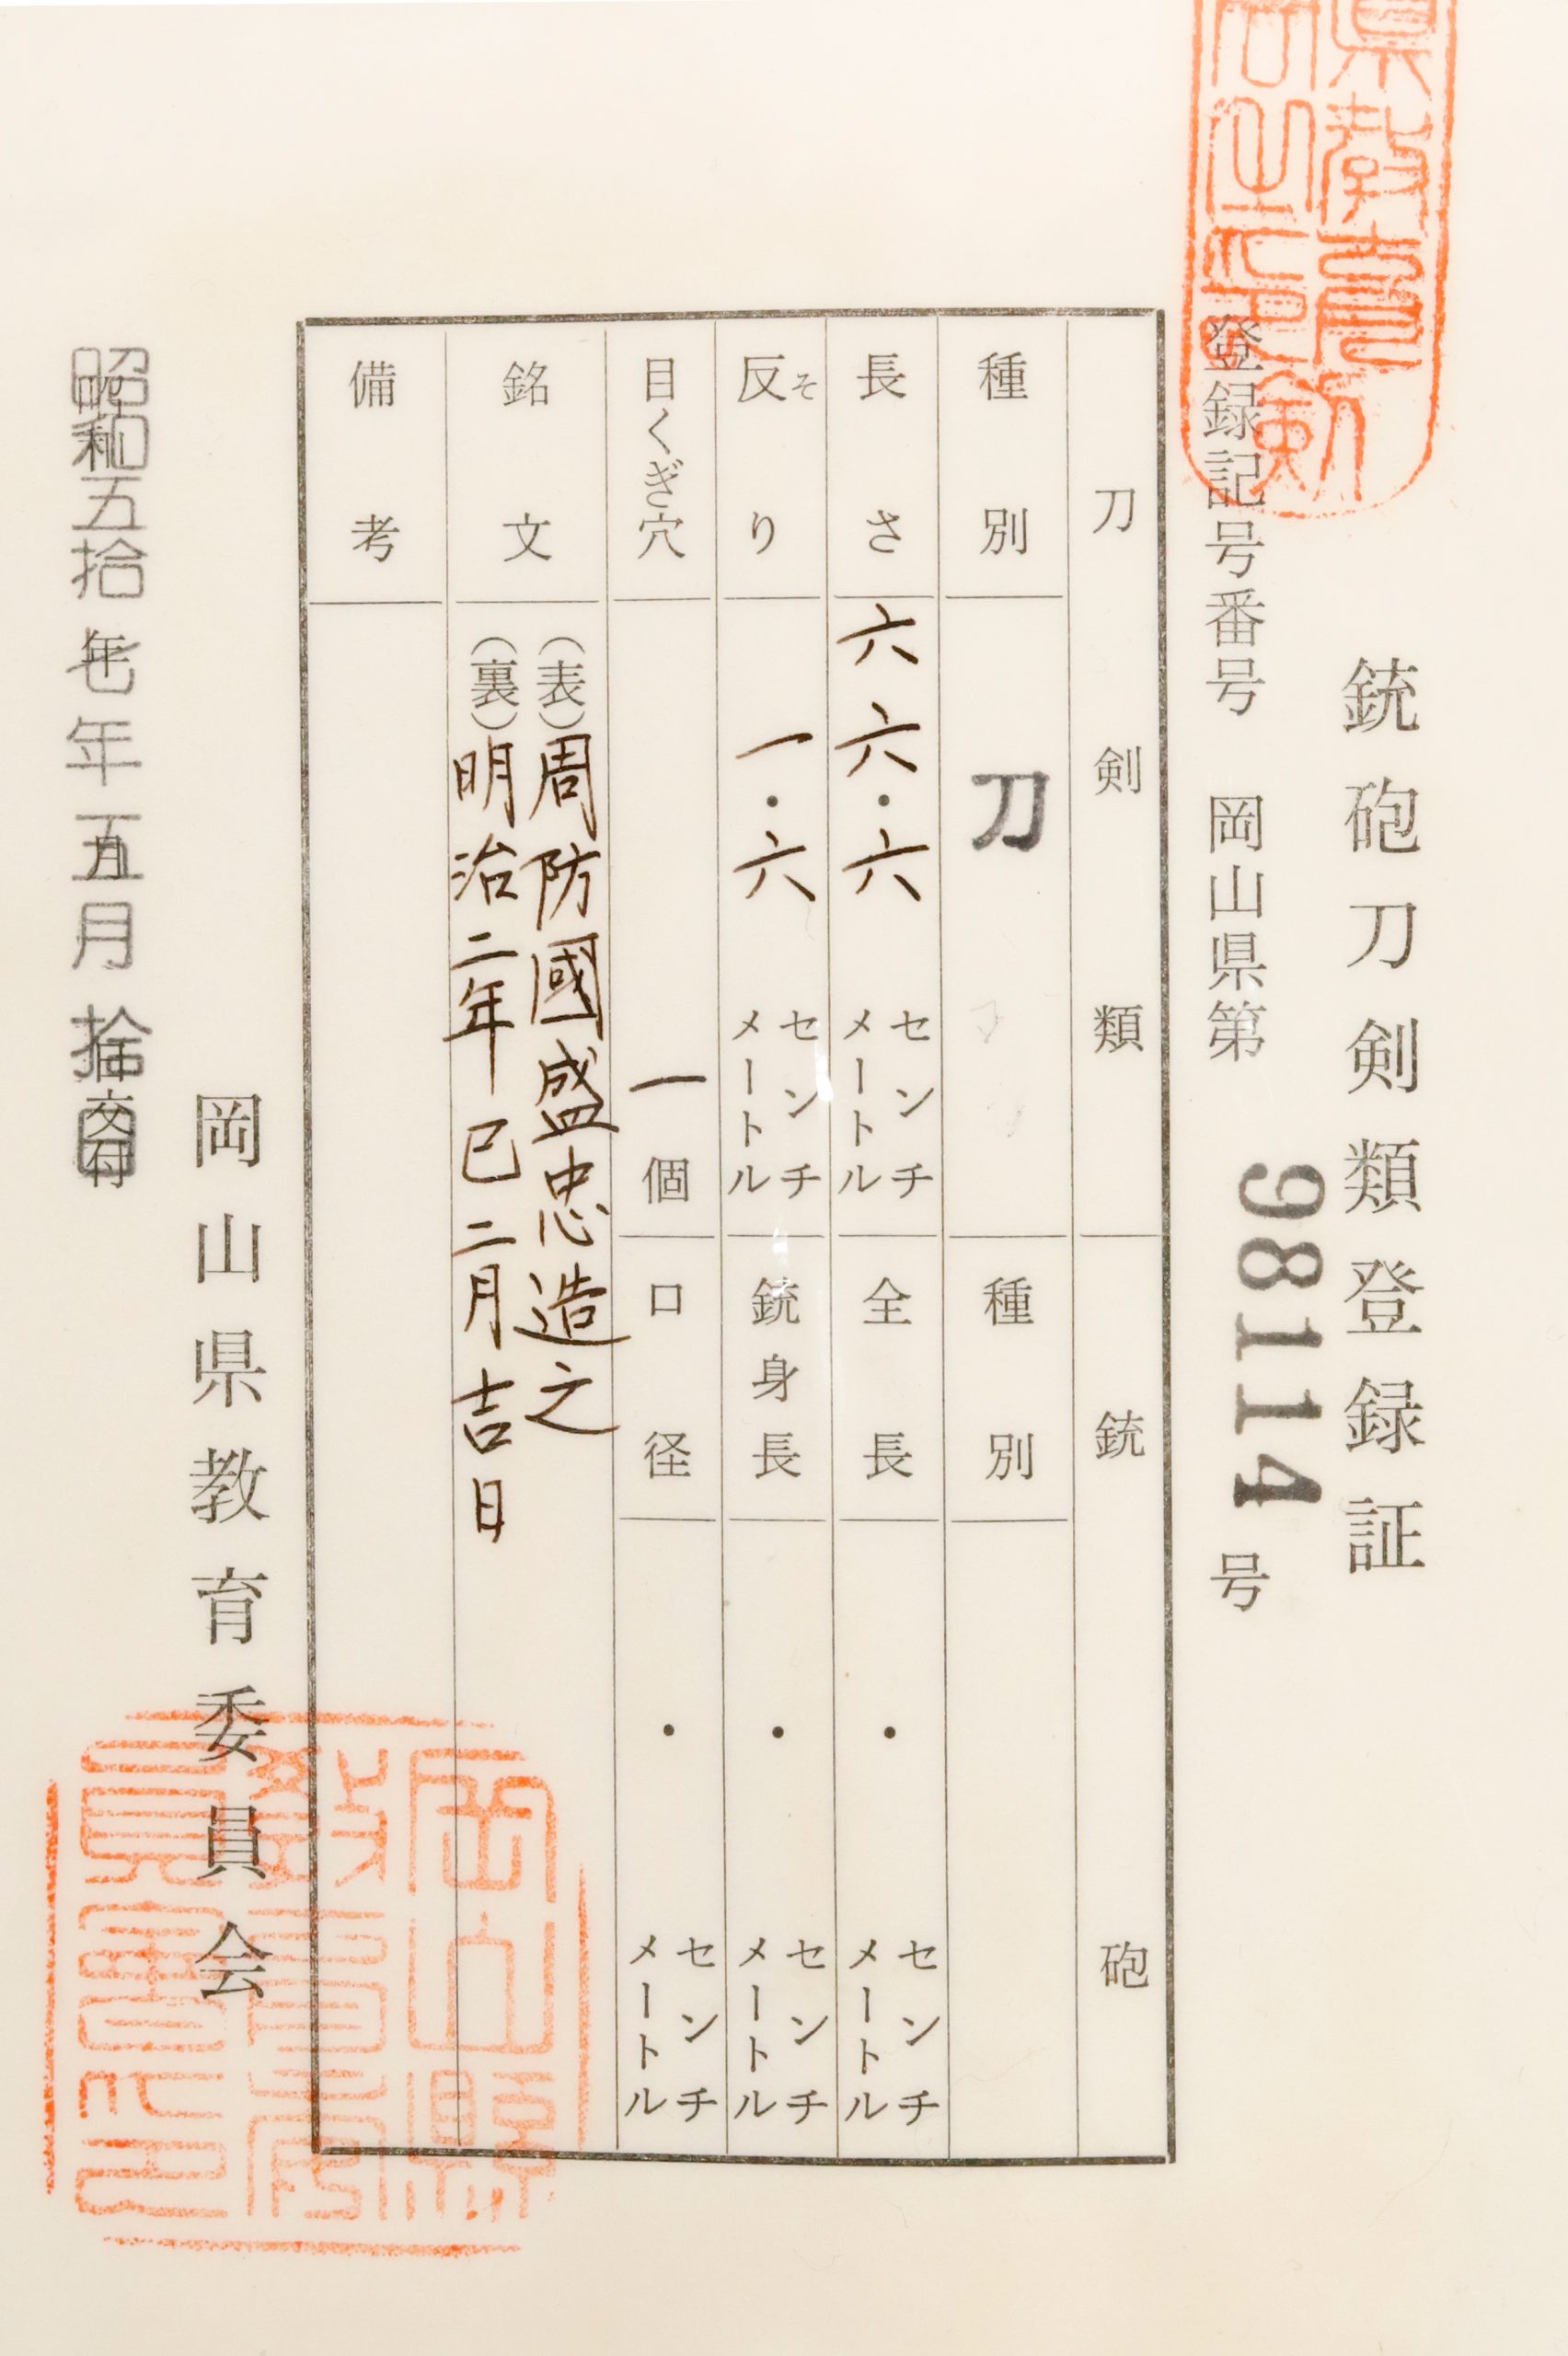 銃砲刀剣類登録証
登録記号番号 岡山県第 98114 号
刀剣類
銃砲
種別 刀
種別
長さ 六六・六 センチメートル
全長 ・ センチメートル
反り そ 一・六 センチメートル
銃身長 ・ センチメートル
目くぎ穴 一個
口径 ・ センチメートル
銘文 (表)周防國盛忠造之
(裏)明治二年巳二月吉日
備考
岡山県教育委員会
昭和五拾七年五月拾日交付